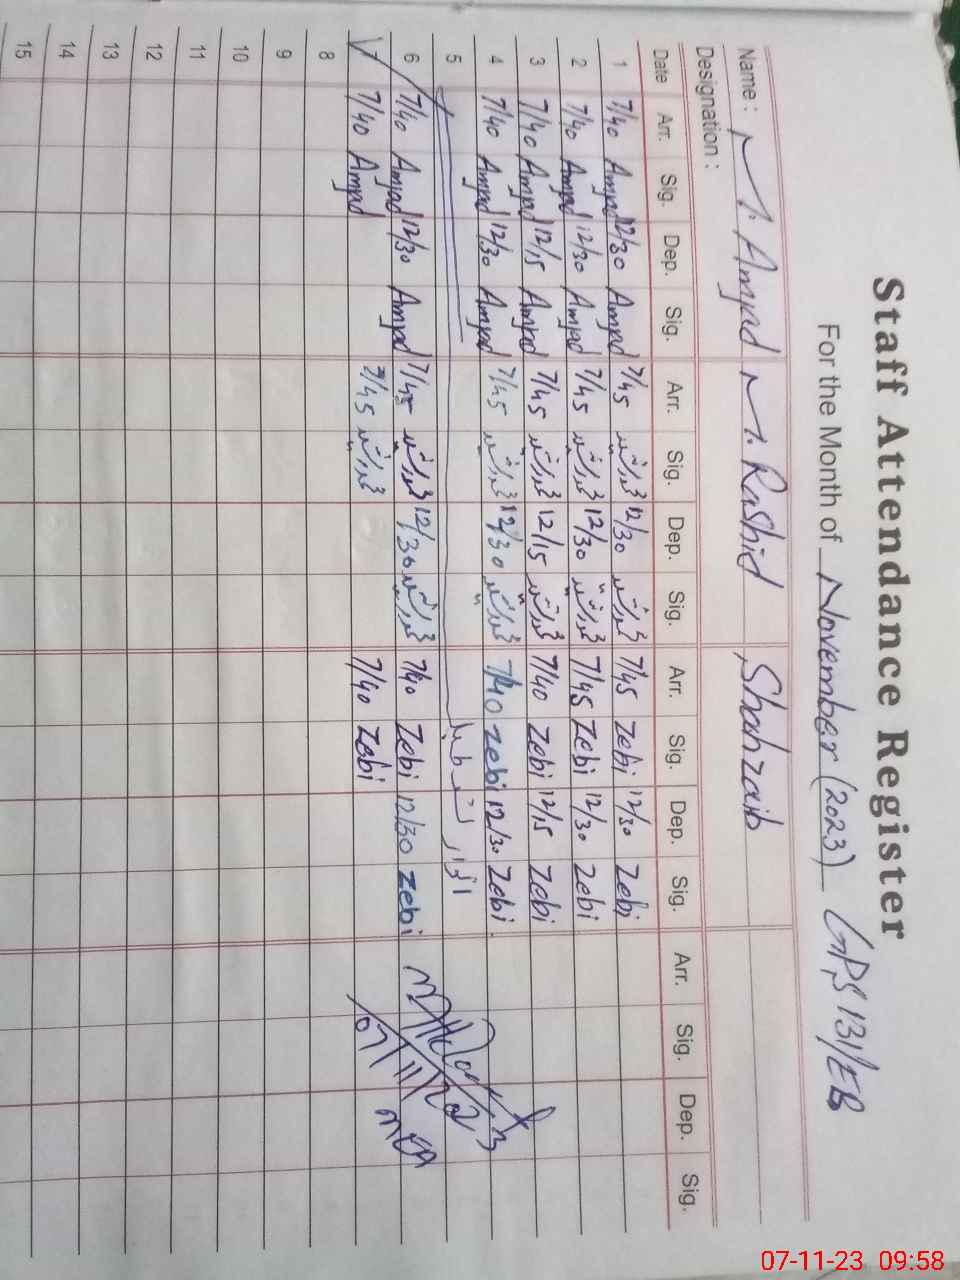 Staff Attendance Register
For the Month of November (2023) GPS 131/EB
Name : M. Amjad M. Rashid Shahzaib
Designation :
Date Arr. Sig. Dep. Sig. Arr. Sig. Dep. Sig. Arr. Sig. Dep. Sig. Arr. Sig. Dep. Sig.
1 7/40 Amjad 12/30 Amjad 7/45 محمد راشد 12/30 محمد راشد 7/45 Zebi 12/30 Zebi
2 7/40 Amjad 12/30 Amjad 7/45 محمد راشد 12/30 محمد راشد 7/45 Zebi 12/30 Zebi
3 7/40 Amjad 12/15 Amjad 7/45 محمد راشد 12/15 محمد راشد 7/40 Zebi 12/15 Zebi
4 7/40 Amjad 12/30 Amjad 7/45 محمد راشد 12/30 محمد راشد 7/40 Zebi 12/30 Zebi
5
6 7/40 Amjad 12/30 Amjad 7/45 محمد راشد 12/30 محمد راشد 7/40 Zebi 12/30 Zebi
7/40 Amjad 7/45 محمد راشد 7/40 Zebi
07/11/2023
MEA
8
9
10
11
12
13
14
15
07-11-23 09:58